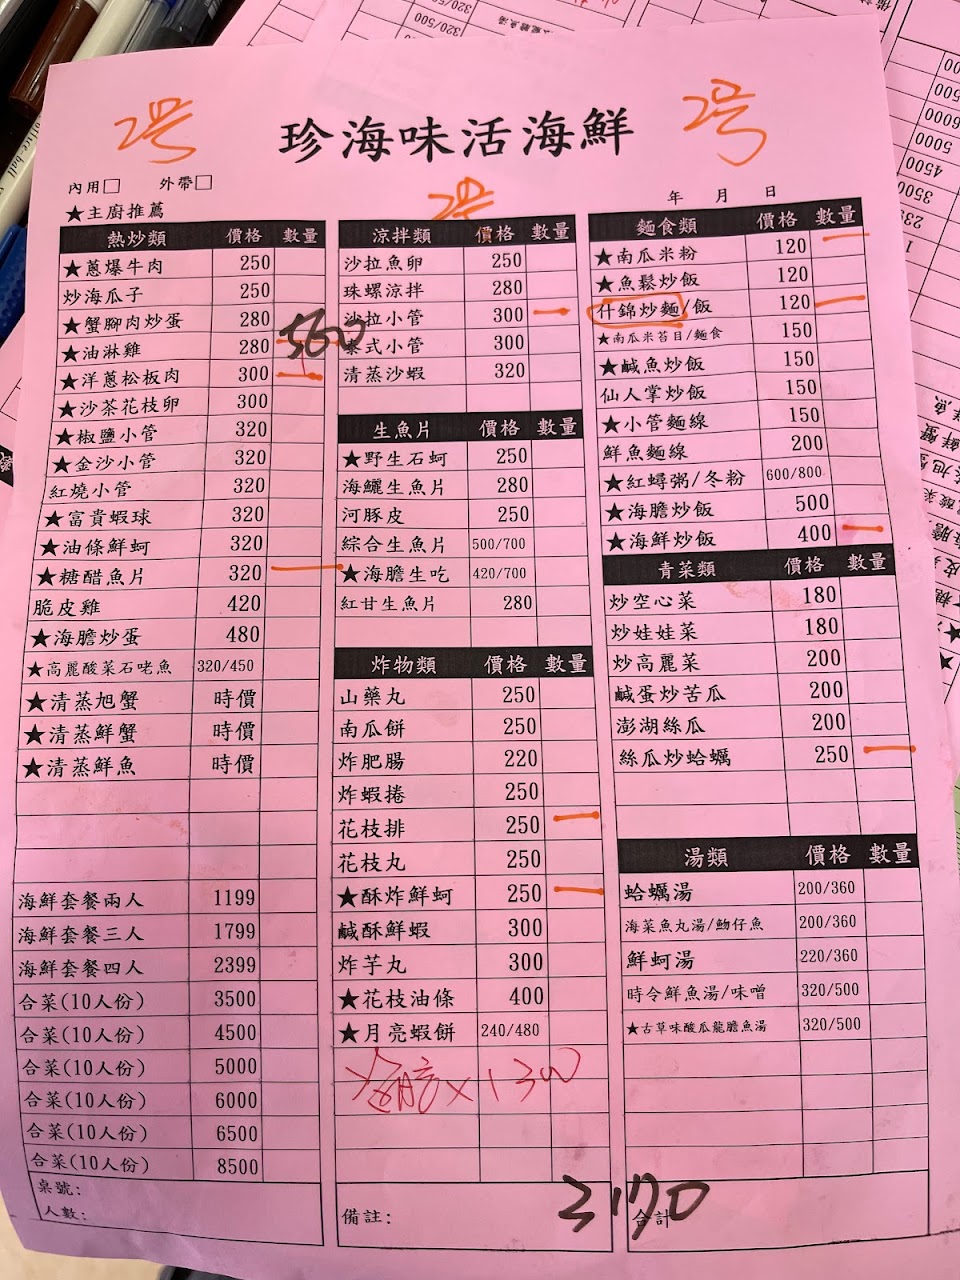 2号
珍海味活海鮮
2号
內用□ 外帶□
2号
年 月 日
★主廚推薦
熱炒類 價格 數量
★蔥爆牛肉 250
炒海瓜子 250
★蟹腳肉炒蛋 280
★油淋雞 280 560
★洋蔥松板肉 300
★沙茶花枝卵 300
★椒鹽小管 320
★金沙小管 320
紅燒小管 320
★富貴蝦球 320
★油條鮮蚵 320
★糖醋魚片 320
脆皮雞 420
★海膽炒蛋 480
★高麗酸菜石咾魚 320/450
★清蒸旭蟹 時價
★清蒸鮮蟹 時價
★清蒸鮮魚 時價
海鮮套餐兩人 1199
海鮮套餐三人 1799
海鮮套餐四人 2399
合菜(10人份) 3500
合菜(10人份) 4500
合菜(10人份) 5000
合菜(10人份) 6000
合菜(10人份) 6500
合菜(10人份) 8500
桌號:
人數:
涼拌類 價格 數量
沙拉魚卵 250
珠螺涼拌 280
沙拉小管 300
泰式小管 300
清蒸沙蝦 320
生魚片 價格 數量
★野生石蚵 250
海鱺生魚片 280
河豚皮 250
綜合生魚片 500/700
★海膽生吃 420/700
紅甘生魚片 280
炸物類 價格 數量
山藥丸 250
南瓜餅 250
炸肥腸 220
炸蝦捲 250
花枝排 250
花枝丸 250
★酥炸鮮蚵 250
鹹酥鮮蝦 300
炸芋丸 300
★花枝油條 400
★月亮蝦餅 240/480
x1 300
備註:
麵食類 價格 數量
★南瓜米粉 120
★魚鬆炒飯 120
什錦炒麵/飯 120
★南瓜米苔目/麵食 150
★鹹魚炒飯 150
仙人掌炒飯 150
★小管麵線 150
鮮魚麵線 200
★紅蟳粥/冬粉 600/800
★海膽炒飯 500
★海鮮炒飯 400
青菜類 價格 數量
炒空心菜 180
炒娃娃菜 180
炒高麗菜 200
鹹蛋炒苦瓜 200
澎湖絲瓜 200
絲瓜炒蛤蠣 250
湯類 價格 數量
蛤蠣湯 200/360
海菜魚丸湯/魩仔魚 200/360
鮮蚵湯 220/360
時令鮮魚湯/味噌 320/500
★古草味酸瓜龍膽魚湯 320/500
合計
3170